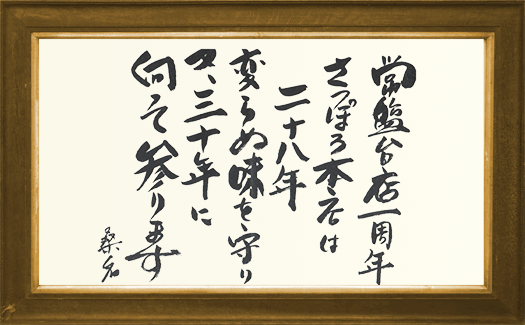 常盤台店一周年
さっぽろ本店は
二十八年
変らぬ味を守り
又、三十年に
向って参ります
桑名